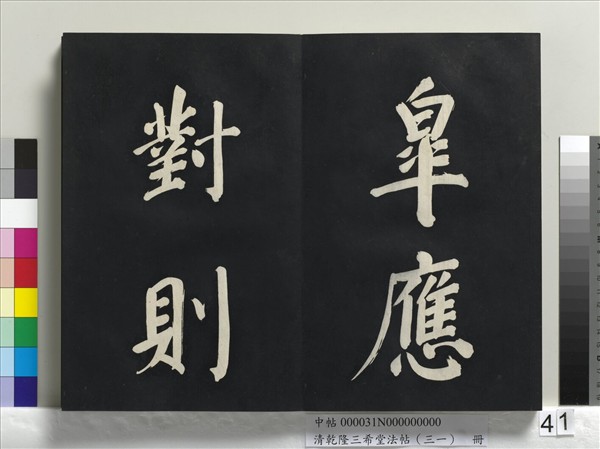 皐應
對則
中帖 000031N000000000
清乾隆三希堂法帖（三一） 冊
41